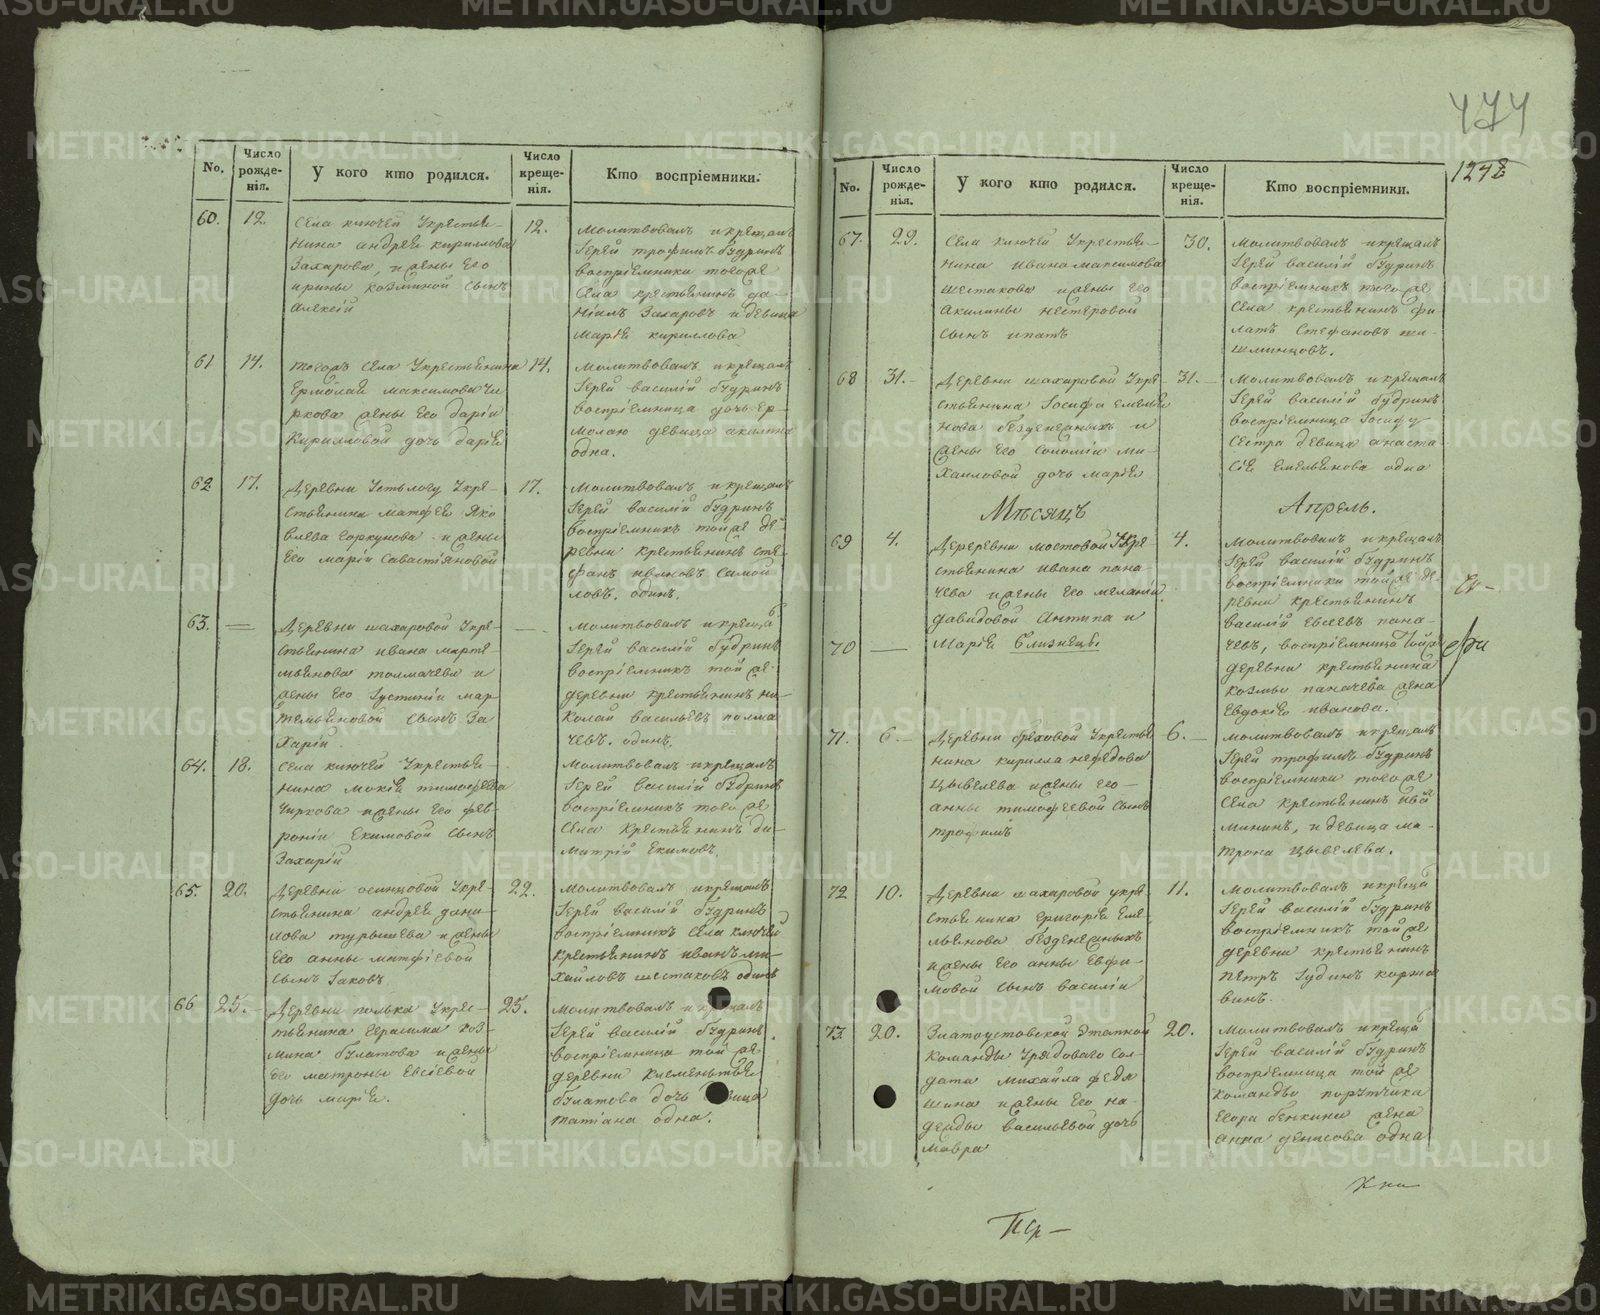 474
1248
No.
Число рожде-нія.
У кого кто родился.
Число креще-нія.
Кто воспріемники.
60.
12.
Села ключей Укрестья-
нина андрея кирилова
Захарова, и жены Его
ирины козминой сынъ
Алексій
12.
Молитвовалъ икрещалъ
Іерей трофимъ будринъ
воспріемники тогоже
Села крестьянинъ да-
ніилъ Захаровъ идевица
Марія кирилова
61
14.
тогожъ села Укрестьянина
Ермолая максимова Чи
ркова жены Его дарiи
Кириловой дочь дарiя
14.
Молитвовалъ икрещалъ
Іерей василій будринъ
воспріемница дочь Ер-
молаю девица акилина
одна.
62
17.
Деревни Устьлогу Укре-
стьянина матфея Яко
влева горкунова и жены
Его маріи Савастіяновой
17.
Молитвовалъ икрещалъ
Іерей василій будринъ
воспріемникъ тойже де
ревни крестьянинъ сте
фанъ ивановъ самой
ловъ. одинъ.
63.
Деревни шахаровой Укре-
стьянина ивана марте
мьянова толмачева и
жены Его Іустиніи мар
темьяновой сынъ За
харій.
Молитвовалъ икреща
Іерей василій будринъ
воспріемникъ той же
деревни крестьянинъ ни-
колай васильевъ толма
чевъ. одинъ.
64.
18.
Села ключей Укрестья-
нина мокія тимофеева
Чиркова ижены Его фев-
роніи Екимовой сынъ
Захарій
Молитвовалъ икрещалъ
Іерей василій будринъ
воспріемникъ тогоже
Села крестьянинъ ди-
митрій Екимовъ.
65.
20.
Деревни осинцовой Укре-
стьянина андрея дани-
лова турышева ижены
Его анны матфіевой
сынъ Іаковъ
22.
Молитвовалъ икрещалъ
Іерей василій будринъ
воспріемникъ села ключей
крестьянинъ иванъ ми-
хайловъ шестаковъ одинъ
66
25.
Деревни полька Укрес-
тьянина Герасима коз-
мина булатова ижены
Его матроны Евсіевой
дочь марія.
25.
Молитвовалъ икрещалъ
Іерей василій будринъ
воспріемница той же
деревни клементья
булатова дочь девица
татіана одна.
No.
Число рожде-нія.
У кого кто родился.
Число креще-нія.
Кто воспріемники.
67.
29.
Села ключей Укрестья-
нина ивана максимова
шестакова ижены его
акилины нестеровой
сынъ ипатъ
30.
Молитвовалъ икрещалъ
Іерей василій будринъ
воспріемникъ тогоже
Села крестьянинъ фи-
латъ Стефановъ
68
31.
Деревни шахаровой Укре-
стьянина Іосифа емелья
нова безденежныхъ и
жены Его соломіи ми-
хаиловой дочь марія
31.
Молитвовалъ икрещалъ
Іерей василій будринъ
воспріемница Іосифу
сестра девица анаста-
сія емельянова одна
Мѣсяцъ Апрель.
69
4.
Дереревни мостовой Укре-
стьянина ивана пана-
чева ижены Его меланіи
давидовой Антипа и
4.
Молитвовалъ икрещалъ
Іерей василій будринъ
воспріемники тойже де-
ревни крестьянинъ
василій Евсеевъ пана-
70
Марія близнецы
чевъ, воспріемница тойже
деревни крестьянина
козмы паначева жена
Евдокія иванова.
71.
6.
Деревни бреховой Укрестья
нина кирилла нефедова
цывелева ижены его
анны тимофеевой сынъ
трофимъ
6.
Молитвовалъ икрещалъ
Іерей трофимъ будринъ
воспріемники тогоже
Села крестьянинъ иванъ
мининъ, и девица ма-
трона цывелева.
72
10.
Деревни шахаровой укре-
стьянина григорія Еме-
льянова безденежныхъ
ижены Его анны Евфи-
мовой сынъ василій
11.
Молитвовалъ икреща
Іерей василій будринъ
воспріемникъ той же
деревни крестьянинъ
петръ Іудинъ корма
винъ.
73.
20.
Златоустовской Этапной
команды Урядоваго сол-
дата михайла федя
шина ижены Его на-
дежды васильевой дочь
Мавра
20.
Молитвовалъ икреща
Іерей василій будринъ
воспріемница той же
команды порутчика
Егора бенкина жена
анна денисова одна